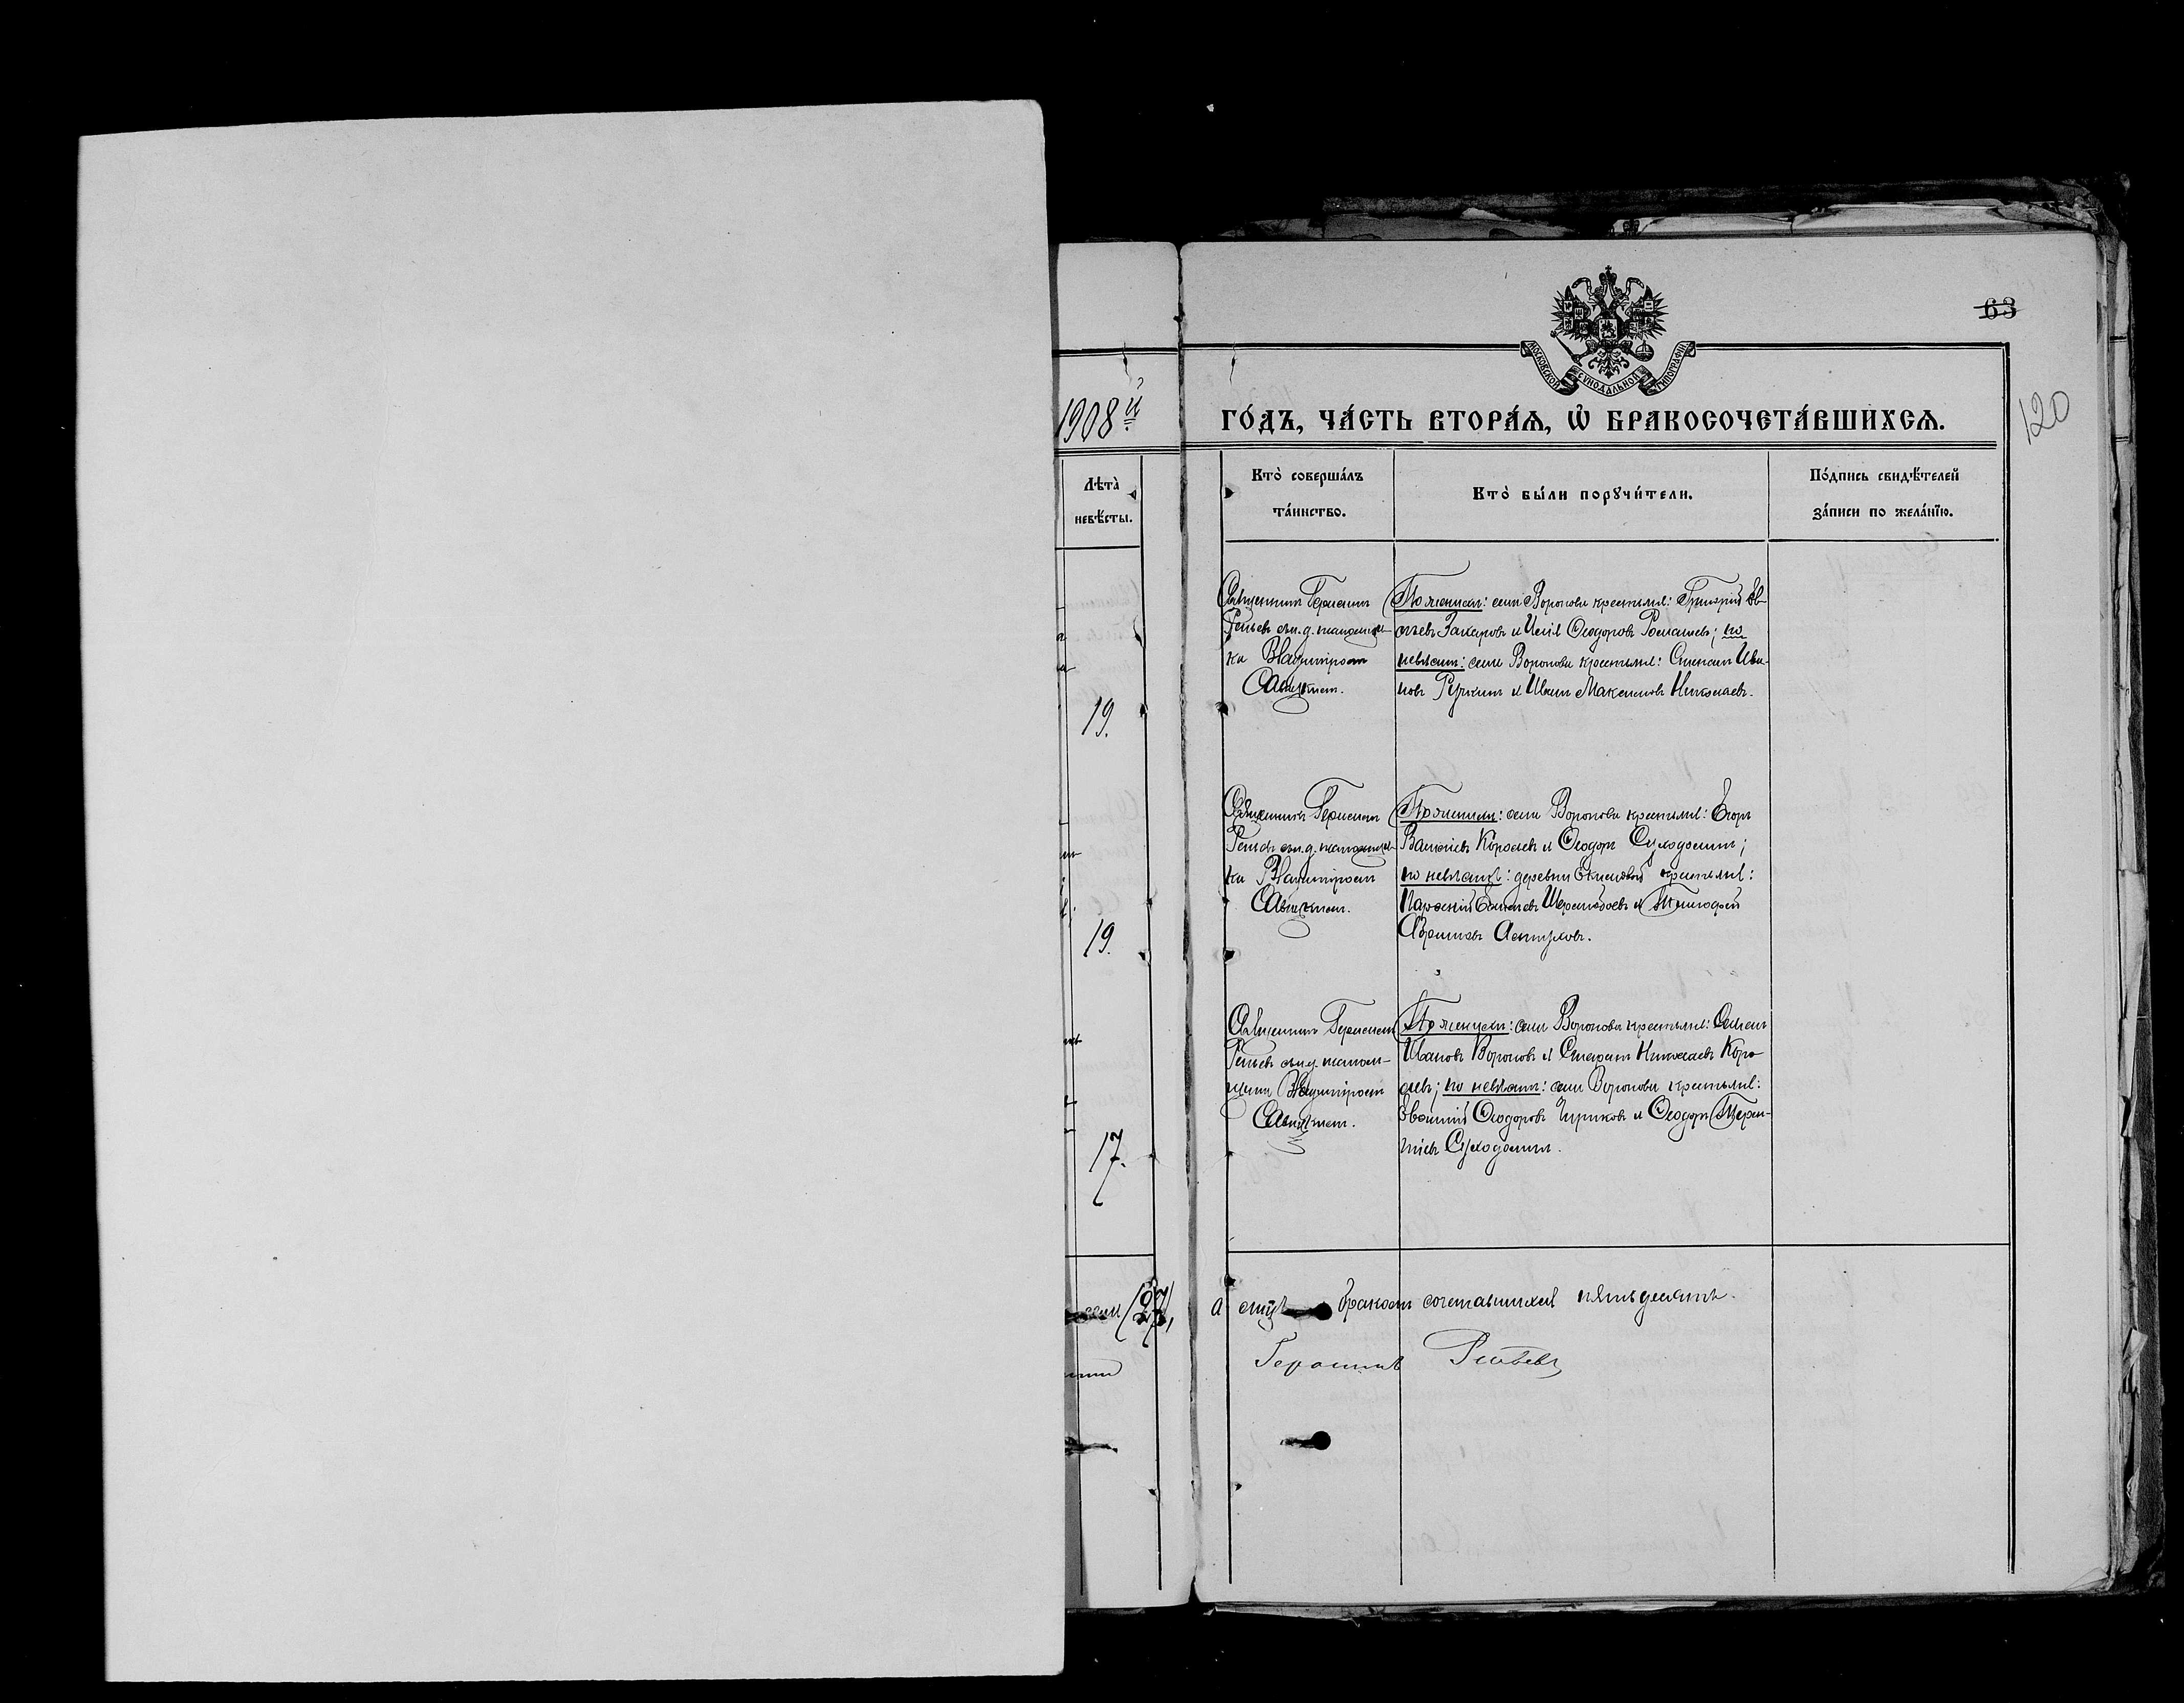 63
120
МОСКОВСКОЙ СѴНОДАЛЬНОЙ ТИПОГРАФІИ
1908й
ГО́ДЪ, ЧА́СТЬ ВТОРА́Ѧ, Ѽ БРАКОСОЧЕТА́ВШИХСѦ.
Лѣта̀
невѣ́сты.
Кто̀ соверша́лъ
та́инство.
Кто̀ бы́ли порꙋчи́тели.
По́дпись свидѣ́телей
за́писи по жела́нїю.
19.
Священникъ Герасимъ
съ и. д. псаломщи-
ка Владиміромъ
По женихѣ: села Воронова крестьяне: Григорій
Захаровъ и Илія Ѳеодоровъ Ромашевъ; по
невѣстѣ: села Воронова крестьяне: Степанъ Ива-
новъ и Иванъ Максимовъ Николаевъ.
19.
Священникъ Герасимъ
съ и. д. псаломщи-
ка Владиміромъ
По женихѣ: села Воронова крестьяне: Егоръ
Васильевъ Королевъ и Ѳеодоръ Суходолинъ;
по невѣстѣ: деревни крестьяне:
и Тимофей
17.
Священникъ Герасимъ
съ и. д. псалом-
щика Владиміромъ
По женихѣ: села Воронова крестьяне: Симеонъ
Ивановъ Вороновъ и Стефанъ Николаевъ Коро-
левъ; по невѣстѣ: села Воронова крестьяне:
Ѳеодоровъ Чириковъ и Ѳеодоръ Терен-
тіевъ Суходолинъ.
(27)
а бракомъ сочетавшихся пятьдесятъ.
Герасимъ